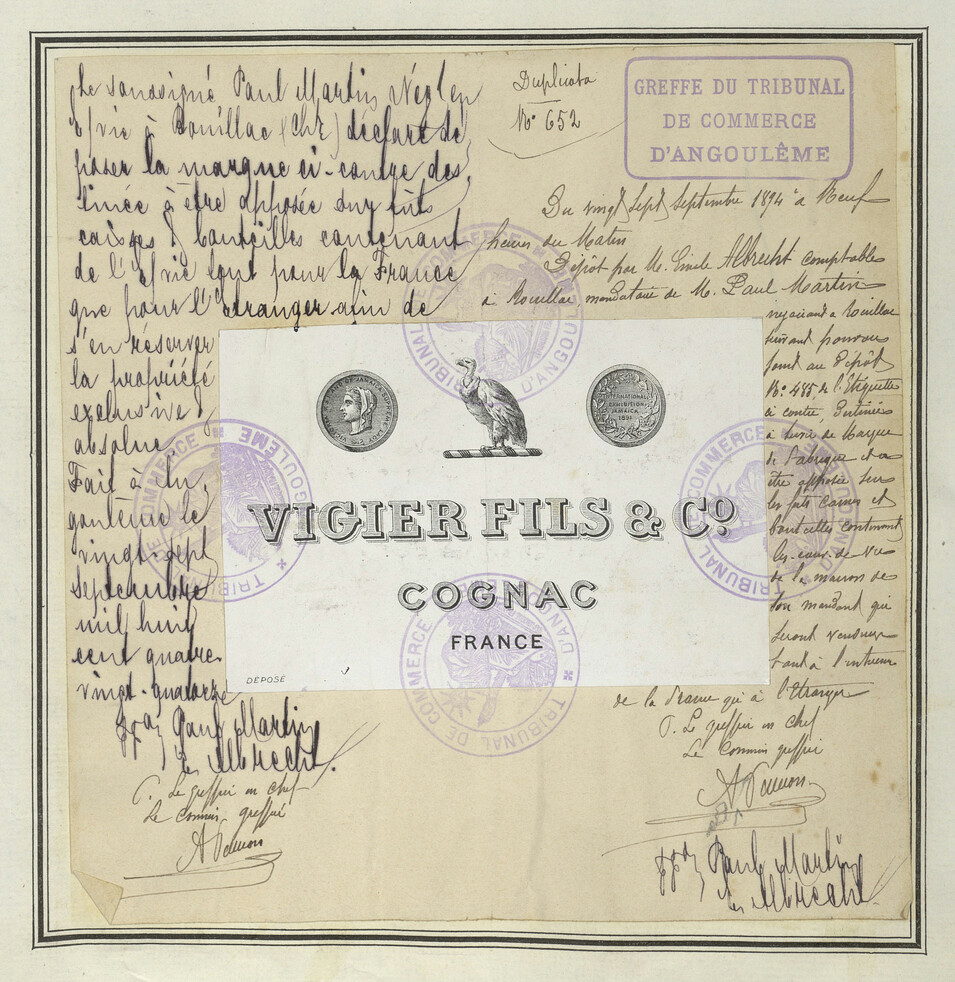 Le soussigné Paul Martin Négt en
E/vie à Rouillac (Chte) déclare dé
poser la marque ci-contre des,
tinée à être apposée sur fûts
caisses & bouteilles contenant
de l'E/vie tant pour la France
que pour l'Etranger afin de
s'en réserver
la propriété
exclusive
absolue
Fait à An,
goulême le
vingt-sept
Septembre
mil huit
cent quatre
vingt-quatorze
ppon Paul Martin
E. Albrecht.
P. Le greffier en chef
Le Commis greffier
Duplicata
No 652
GREFFE DU TRIBUNAL
DE COMMERCE
D'ANGOULÊME
Du vingt sept Septembre 1894 à Neuf
heures du Matin
Dépôt par M. Emile Albrecht comptable
à Rouillac mandataire de M. Paul Martin
négociant à Rouillac
suivant pouvoir
joint au Dépôt
No 485 de l'Etiquette
ci contre, destinée
à servir de Marque
de Fabrique et à
être apposée sur
les fûts caisses et
bouteilles contenant
les eaux-de-vie
de la maison de
son mandant qui
seront vendues
tant à l'intérieur
de la France qu'à l'Etranger
P. Le greffier en chef
Le Commis greffier
ppon Paul Martin
E. Albrecht
INTERNATIONAL
EXHIBITION
JAMAICA
1891
VIGIER FILS & Co.
COGNAC
FRANCE
DÉPOSÉ
TRIBUNAL DE COMMERCE D'ANGOULÊME
TRIBUNAL DE COMMERCE D'ANGOULÊME
TRIBUNAL DE COMMERCE D'ANGOULÊME
TRIBUNAL DE COMMERCE D'ANGOULÊME